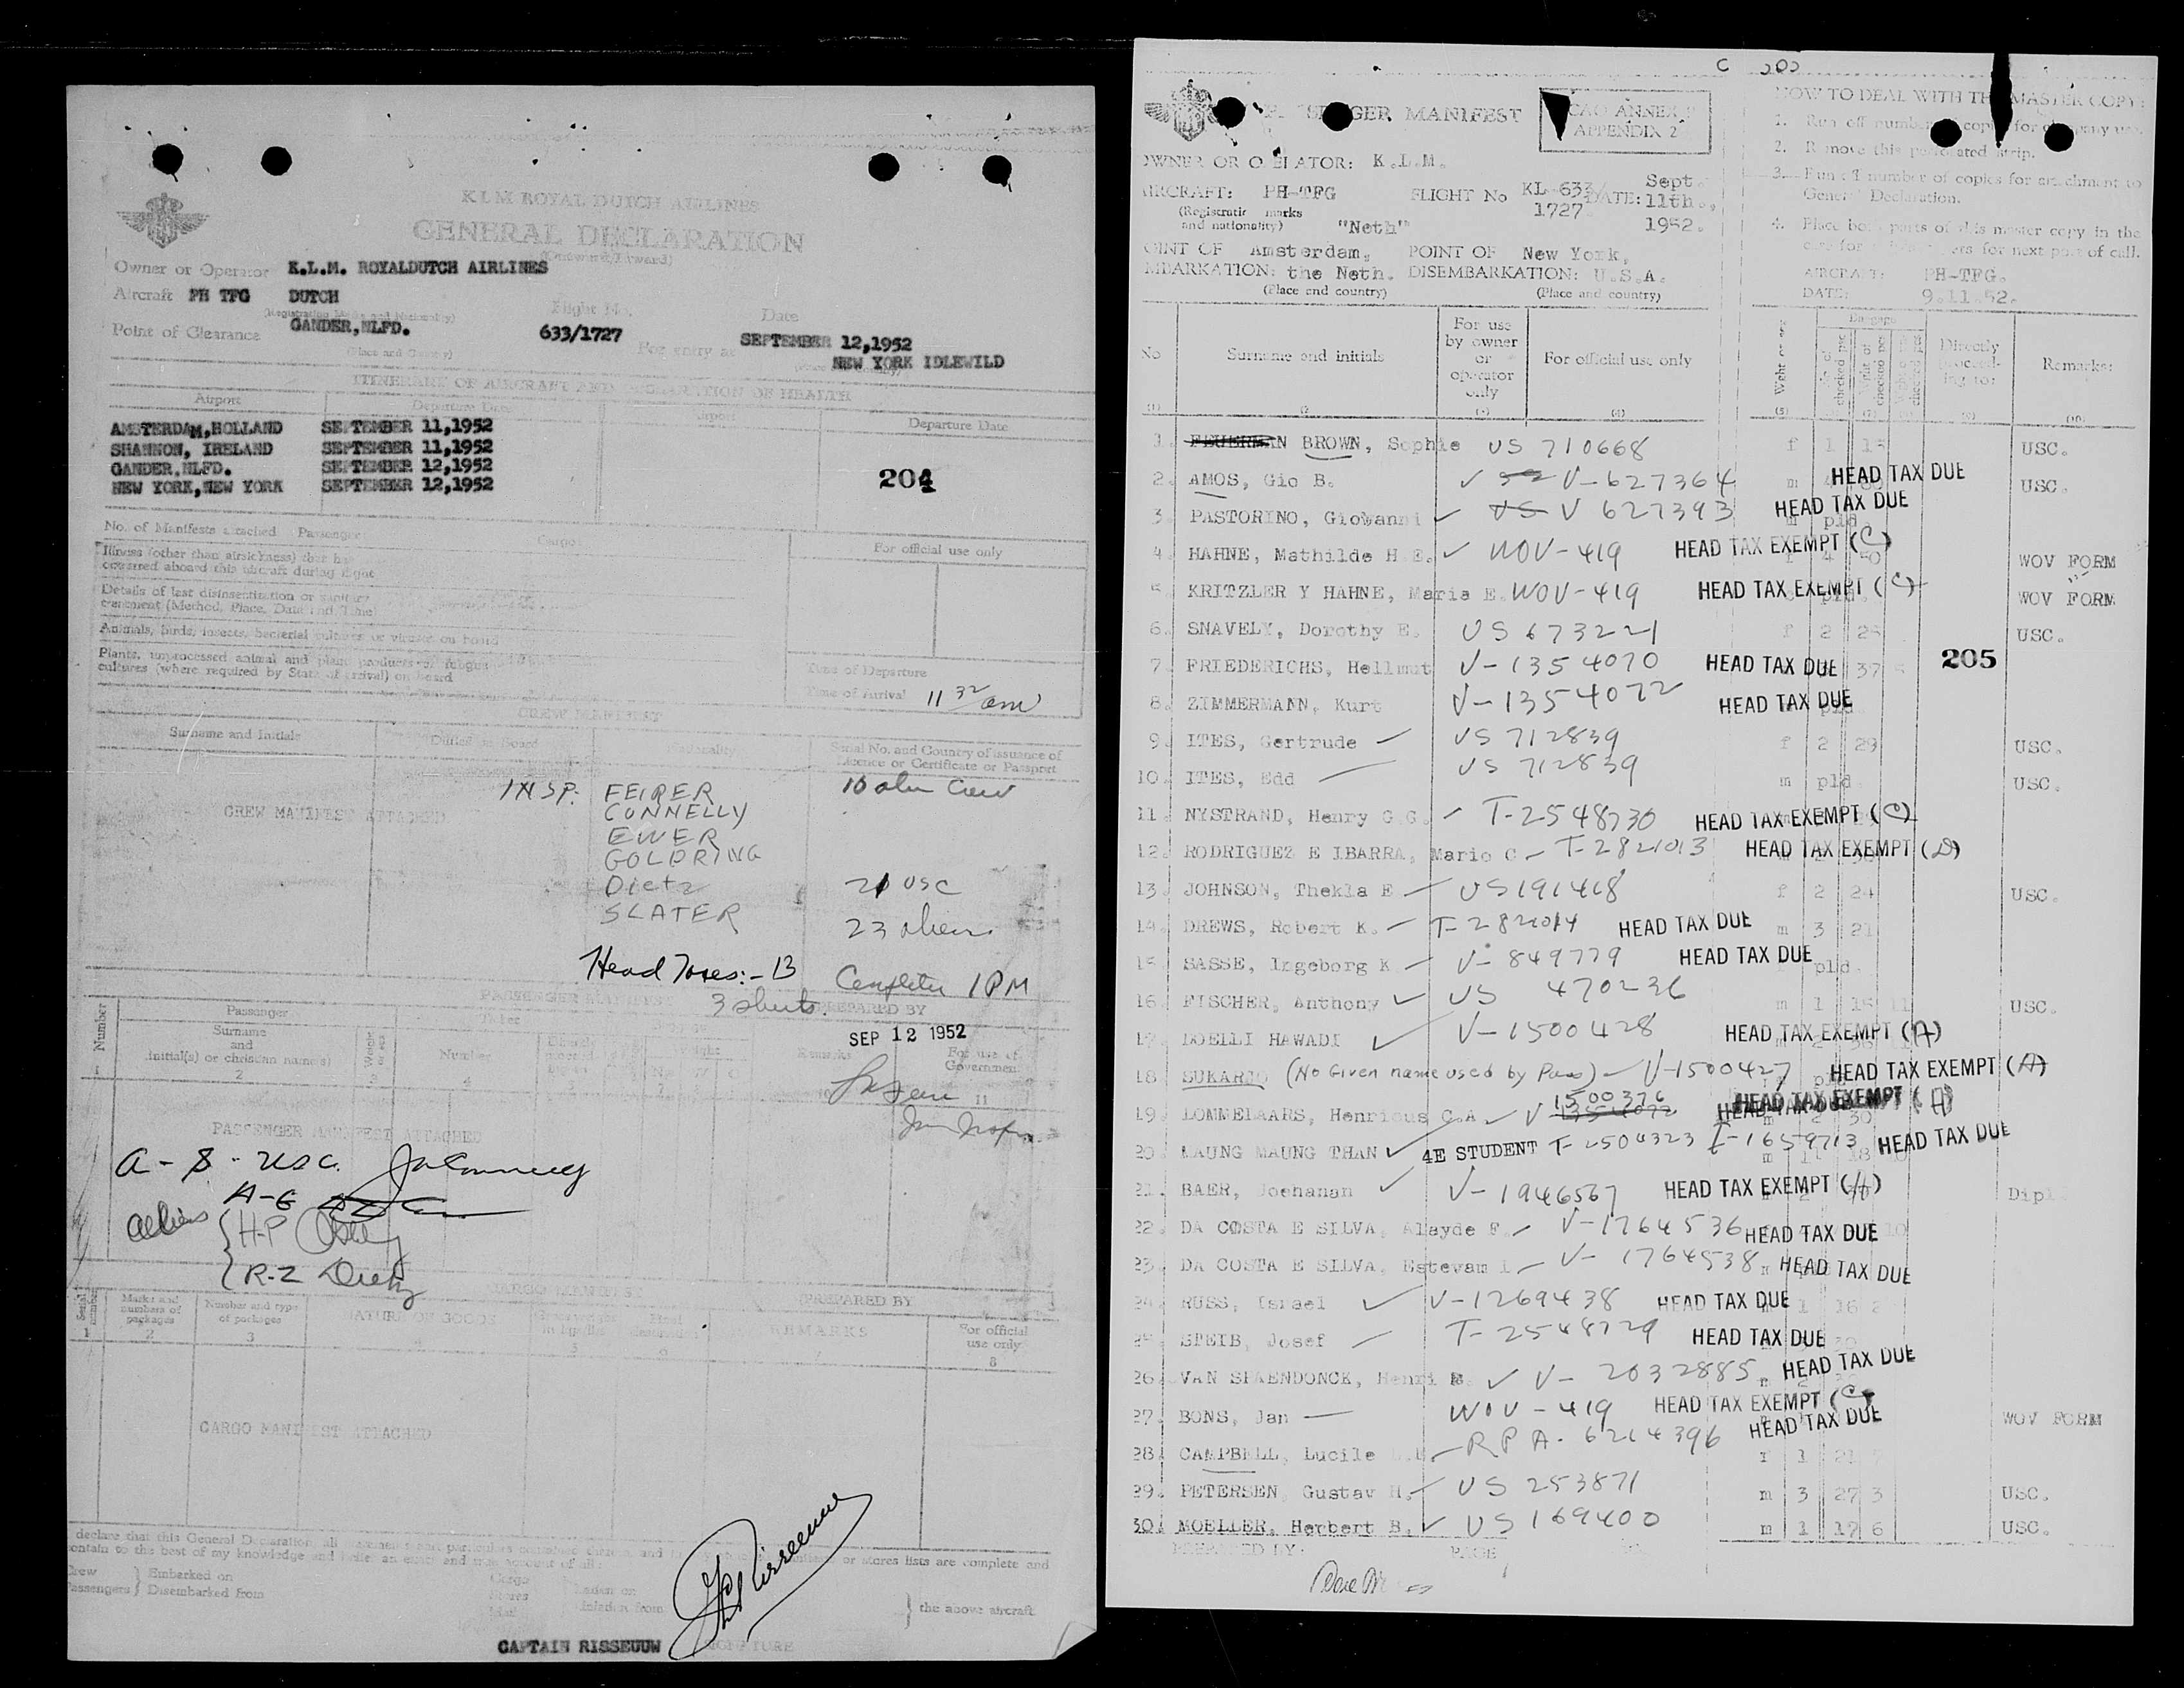 K.L.M. ROYAL DUTCH AIRLINES
GENERAL DECLARATION
(Outward/Inward)
Owner or Operator K.L.M. ROYALDUTCH AIRLINES
Aircraft PH TFG DUTCH
(Registration Marks and Nationality)
Flight No. 633/1727
Date SEPTEMBER 12,1952
Point of Clearance GANDER,NLFD.
(Place and Country)
For entry at NEW YORK IDLEWILD
ITINERARY OF AIRCRAFT AND DECLARATION OF HEALTH
Airport Departure Date Airport Departure Date
AMSTERDAM,HOLLAND SEPTEMBER 11,1952
SHANNON, IRELAND SEPTEMBER 11,1952
GANDER,NLFD. SEPTEMBER 12,1952
NEW YORK,NEW YORK SEPTEMBER 12,1952
204
No. of Manifests attached Passenger Cargo
For official use only
Illness (other than airsickness) that has
occurred aboard this aircraft during flight
Details of last disinsectization or sanitary
treatment (Method, Place, Date and Time)
Animals, birds, insects, bacterial cultures or viruses on board
Plants, unprocessed animal and plant products or fungus
cultures (where required by State of arrival) on board
Time of Departure
Time of Arrival 11 32 am
CREW MANIFEST
Surname and Initials Duties on Board Nationality Serial No. and Country of issuance of
Licence or Certificate or Passport
CREW MANIFEST ATTACHED
INSP. FEIRER 10 alien Crew
CONNELLY
EWER
GOLDRING
Dietz 21 USC
SLATER 23 aliens
Head Taxes:- 13 Completed 1PM
3 sheets.
PASSENGER MANIFEST
PREPARED BY
SEP 12 1952
Number Passenger
Surname
and
initial(s) or christian name(s)
Number Remarks For use of
Government
2 4 11
PASSENGER MANIFEST ATTACHED
A - S - USC.
Aliens A-G
H-P
R-Z Dietz
CARGO MANIFEST PREPARED BY
Serial number Marks and numbers of packages Number and type of packages NATURE OF GOODS REMARKS For official use only
1 2 3 4 5 6 7 8
CARGO MANIFEST ATTACHED
I declare that this General Declaration, all
contain to the best of my knowledge and belief an exact and true account of all:
or stores lists are complete and
Crew Embarked on
Passengers Disembarked from
Cargo
Stores
Mail
Laden on
Unladen from
the above aircraft
CAPTAIN RISSEUUW SIGNATURE
PASSENGER MANIFEST
ICAO ANNEX 9
APPENDIX 2
OWNER OR OPERATOR: K.L.M.
AIRCRAFT: PH-TFG FLIGHT No KL-633/1727 DATE: Sept. 11th., 1952.
(Registration marks
and nationality) "Neth"
POINT OF EMBARKATION: Amsterdam, the Neth. POINT OF DISEMBARKATION: New York, U.S.A.
(Place and country) (Place and country)
HOW TO DEAL WITH THE MASTER COPY:
1. Run off number of copies for company use.
2. Remove this perforated strip.
3. Run off number of copies for attachment to
General Declaration.
4. Place both parts of this master copy in the
AIRCRAFT: PH-TFG.
DATE: 9.11.52.
No Surname and initials For use by owner or operator only For official use only Baggage Directly proceeding to: Remarks:
(1) (2) (3) (4) (5)
1. FEUERMAN BROWN, Sophie US 710668 f 1 15 USC.
2. AMOS, Gio B. V-627364 m HEAD TAX DUE USC.
3. PASTORINO, Giovanni V 627393 HEAD TAX DUE m pld
4. HAHNE, Mathilde H E. WOV-419 HEAD TAX EXEMPT (C) WOV FORM
5. KRITZLER Y HAHNE, Maria E. WOV-419 HEAD TAX EXEMPT (C) pld. WOV FORM
6. SNAVELY, Dorothy E. US 673221 f 2 25 USC.
7. FRIEDERICHS, Hellmut V-1354070 HEAD TAX DUE 37
205
8. ZIMMERMANN, Kurt V-1354072 HEAD TAX DUE pld
9. ITES, Gertrude US 712839 f 2 29 USC.
10. ITES, Edd US 712839 m pld USC.
11. NYSTRAND, Henry G.G. T-2548730 HEAD TAX EXEMPT (C)
12. RODRIGUEZ E IBARRA, Mario C T-2821013 HEAD TAX EXEMPT (D)
13. JOHNSON, Thekla E US 191468 f 2 24 USC.
14. DREWS, Robert K. T-2821014 HEAD TAX DUE m 3 21
15. SASSE, Ingeborg K V-849779 HEAD TAX DUE pld.
16. FISCHER, Anthony US 470236 m 1 15 11 USC.
17. DOELLI HAWADI V-1500428 HEAD TAX EXEMPT (A)
18. SUKARJO (No Given name used by Pass) V-1500427 HEAD TAX EXEMPT (A)
19. LOMMELAARS, Henricus C.A. V 1500376 HEAD TAX EXEMPT (A)
20. MAUNG MAUNG THAN 4E STUDENT T-2504323 I-1659713 HEAD TAX DUE
21. BAER, Joehanan V-1946567 HEAD TAX EXEMPT (H) Dipl
22. DA COSTA E SILVA, Alayde F. V-1764536 HEAD TAX DUE
23. DA COSTA E SILVA, Estevam L V-1764538 HEAD TAX DUE
24. RUSS, Israel V-1269438 HEAD TAX DUE 1 16
25. STEIB, Josef T-2548729 HEAD TAX DUE
26. VAN SPAENDONCK, Henri V-2032885 HEAD TAX DUE
27. BONS, Jan WOV-419 HEAD TAX EXEMPT (C) WOV FORM
28. CAMPBELL, Lucile RPA-6214396 HEAD TAX DUE f 1 21
29. PETERSEN, Gustav H. US 253871 m 3 27 3 USC.
30. MOELLER, Herbert B. US 169400 m 1 17 6 USC.
PREPARED BY: PAGE